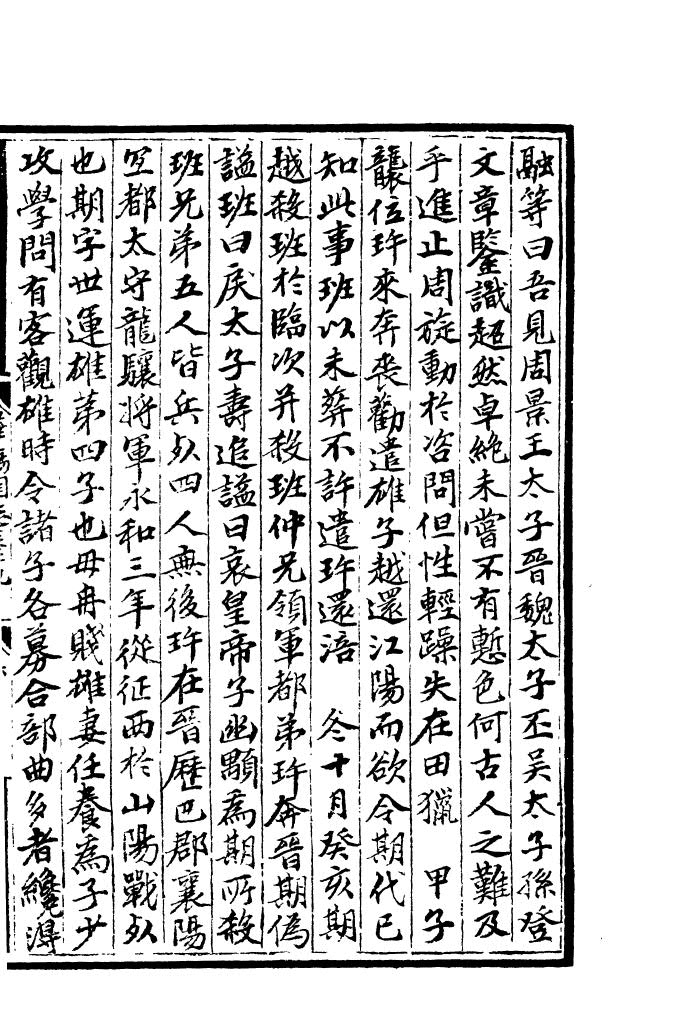 融等曰吾見周景王太子晉魏太子丕吳太子孫登
文章鑒識超然卓絶未嘗不有慙色何古人之難及
乎進止周旋動於咨問但性輕躁失在田獵　甲子
襲位玝來奔喪勸遣雄子越還江陽而欲令期代已
知此事班以未葬不許遣玝還涪　冬十月癸亥期
越殺班於臨次并殺班仲兄領軍都弟玝奔晉期偽
謚班曰戾太子壽追謚曰哀皇帝子幽顒為期所殺
班兄弟五人皆兵死四人無後玝在晉歷巴郡襄陽
宜都太守龍驤將軍永和三年從征西於山陽戰死
也期字世運雄第四子也毋冉賤雄妻任養為子少
攻學問有客觀雄時令諸子各募合部曲多者纔淂